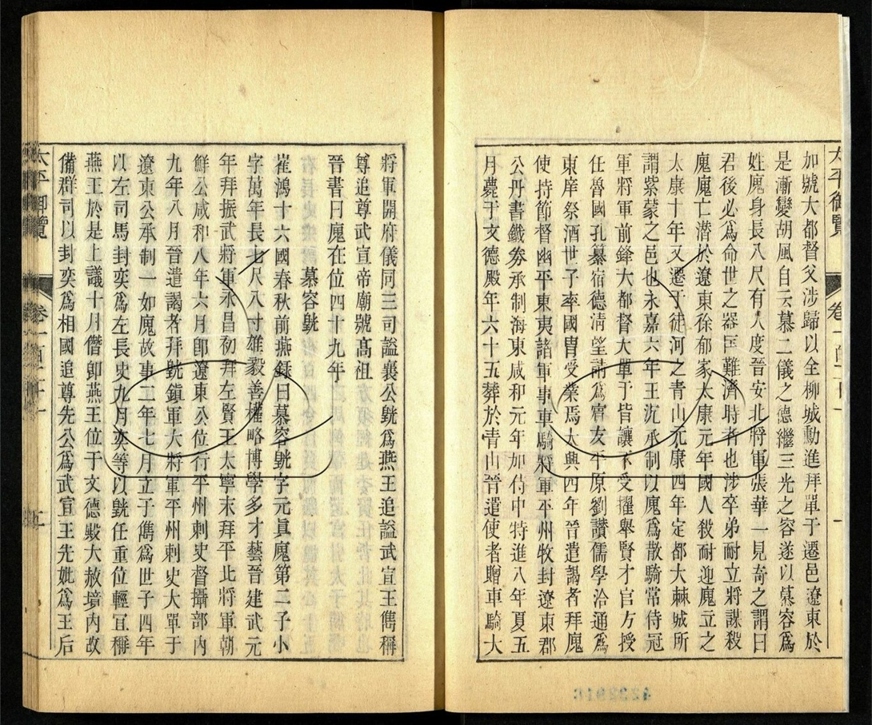 加號大都督父涉歸以全柳城勳進拜單于遷邑遼東於
是漸變胡風自云慕二儀之德繼三光之容遂以慕容爲
姓廆身長八尺有人度晉安北將軍張華一見奇之謂曰
君後必爲命世之器匡難濟時者也涉卒弟耐立將謀殺
廆廆亡潛於遼東徐郁家太康元年國人殺耐迎廆立之
太康十年又遷于徒河之青山元康四年定都大棘城所
謂紫蒙之邑也永嘉六年王沉承制以廆爲散騎常侍冠
軍將軍前鋒大都督大單于皆讓不受擢舉賢才官方授
任魯國孔纂宿德清望爲賓友平原劉讚儒學洽通爲
東庠祭酒世子率國冑受業焉大興四年晉遣謁者拜廆
使持節督幽平東夷諸軍事車騎將軍平州牧封遼東郡
公丹書鐵券承制海東咸和元年加侍中特進八年夏五
月薨于文德殿年六十五葬於青山晉遣使者贈車騎大
太平御覽
卷一百二十一
將軍開府儀同三司謚襄公皝爲燕王追謚武宣王雋稱
尊追尊武宣帝廟號高祖
晉書曰廆在位四十九年
慕容皝
崔鴻十六國春秋前燕錄曰慕容皝字元眞廆第二子小
字萬年長七尺八寸雄毅善權略博學多才藝晉建武元
年拜振武將軍永昌初拜左賢王太寧末拜平北將軍朝
鮮公咸和八年六月卽遼東公位行平州刺史督攝部內
九年八月晉遣謁者拜皝鎭軍大將軍平州刺史大單于
遼東公承制一如廆故事二年七月立子雋爲世子四年
以左司馬封奕爲左長史九月奕等以皝任重位輕宜稱
燕王於是上議十月僭卽燕王位于文德殿大赦境內改
備群司以封奕爲相國追尊先公爲武宣王先妣爲王后
太平御覽
卷一百二十一
五
4232916